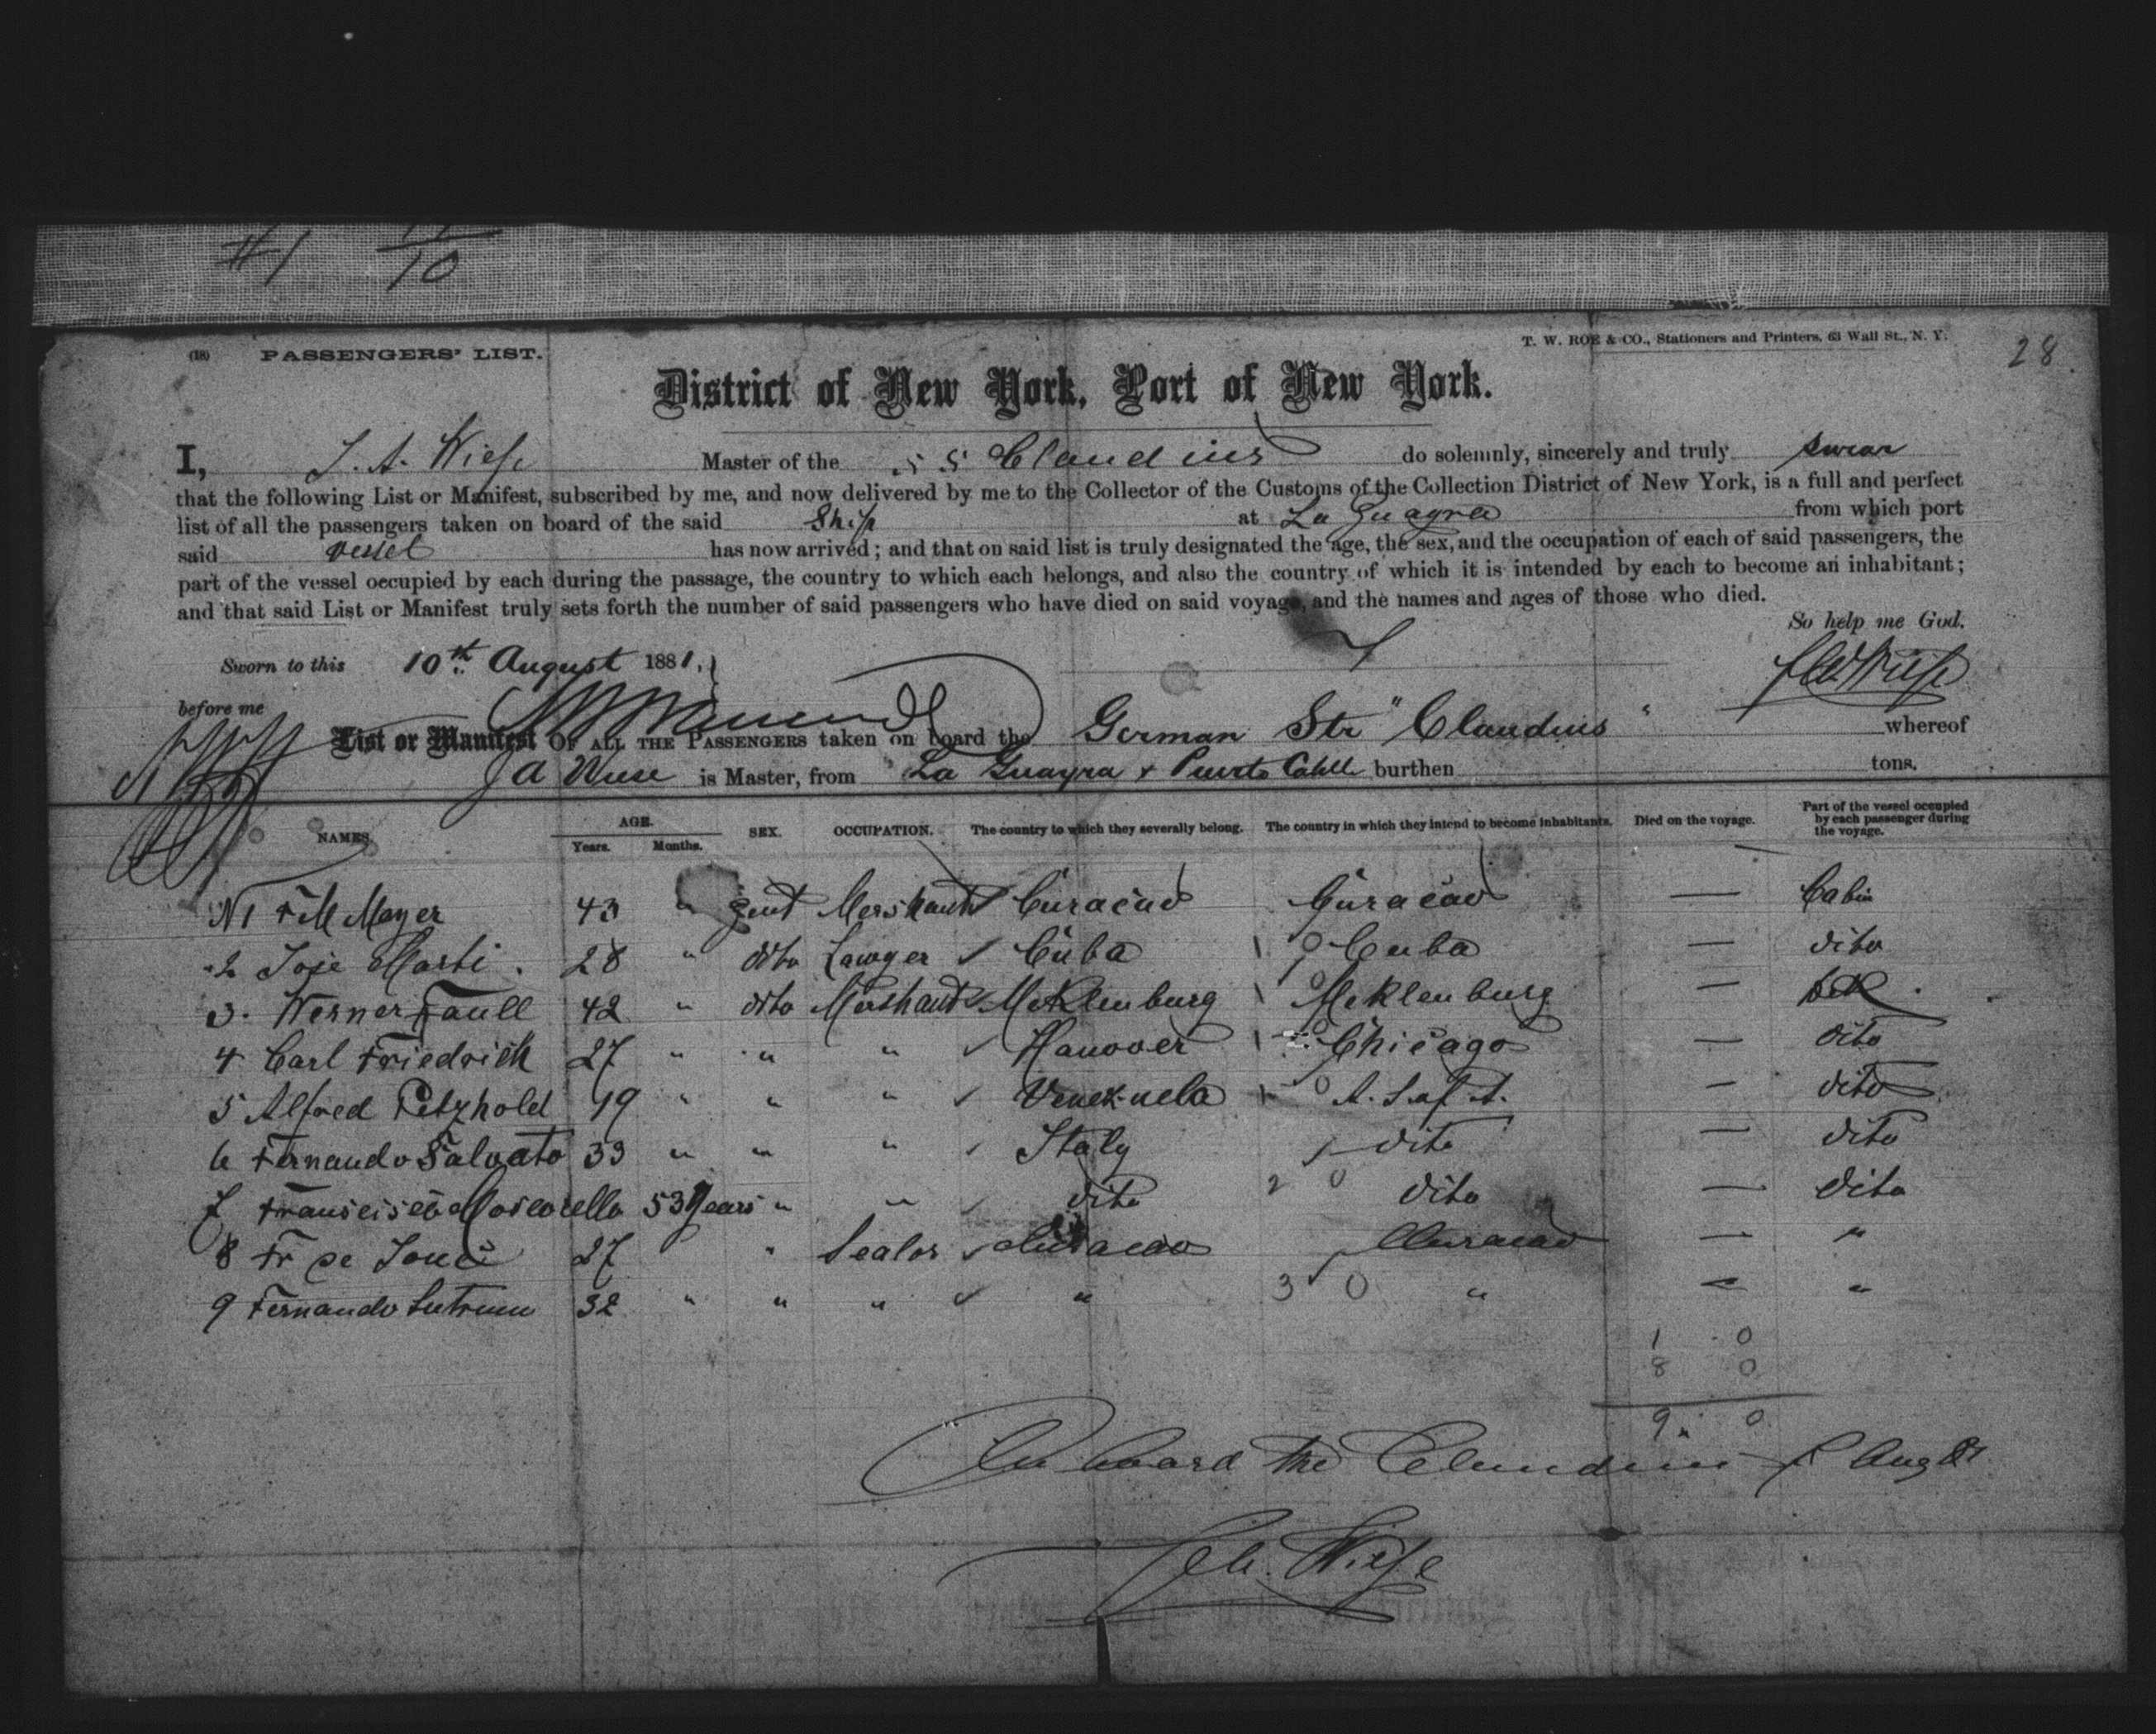 #1 10
(18) PASSENGERS' LIST.
T. W. ROE & CO., Stationers and Printers, 63 Wall St., N. Y.
28
District of New York, Port of New York.
I, J. A. Wiese Master of the S S Claudius do solemnly, sincerely and truly swear
that the following List or Manifest, subscribed by me, and now delivered by me to the Collector of the Customs of the Collection District of New York, is a full and perfect
list of all the passengers taken on board of the said Ship at La Guayra from which port
said vessel has now arrived; and that on said list is truly designated the age, the sex, and the occupation of each of said passengers, the
part of the vessel occupied by each during the passage, the country to which each belongs, and also the country of which it is intended by each to become an inhabitant;
and that said List or Manifest truly sets forth the number of said passengers who have died on said voyage, and the names and ages of those who died.
So help me God.
Sworn to this 10th August 1881,
before me
List or Manifest OF ALL THE PASSENGERS taken on board the German Str "Claudius" whereof
J A Wiese is Master, from La Guayra & Puerto Cabllo burthen tons.
NAMES. AGE. Years. Months. SEX. OCCUPATION. The country to which they severally belong. The country in which they intend to become inhabitants. Died on the voyage. Part of the vessel occupied by each passenger during the voyage.
N1 F M Meyer 43 " gent Merschant Curacao Curacao — Cabin
2 Jose Marti 28 " dito Lawyer Cuba 1 0 Cuba — dito
3. Werner Faull 42 " dito Merschant Meklenburg 1 0 Meklenburg —
4 Carl Friedrich 27 " " " Hanover 1 Chicago — dito
5 Alfred Petzhold 19 " " " Venezuela 1 0 — dito
6 Fernando Salvato 33 " " " Italy dito — dito
7 53 Years " " dito 2 0 dito — dito
8 Fr 27 " Sealor Curacao Curacao — "
9 Fernando 32 " " " " 3 0 " — "
1 0
8 0
9 0
On board the Claudius Aug 81
Wiese